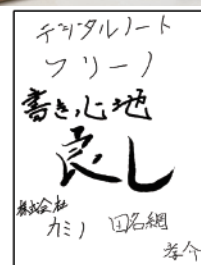 デジタルノート
フリーノ
書き心地
良し
株式会社
カミノ 田名網
孝介